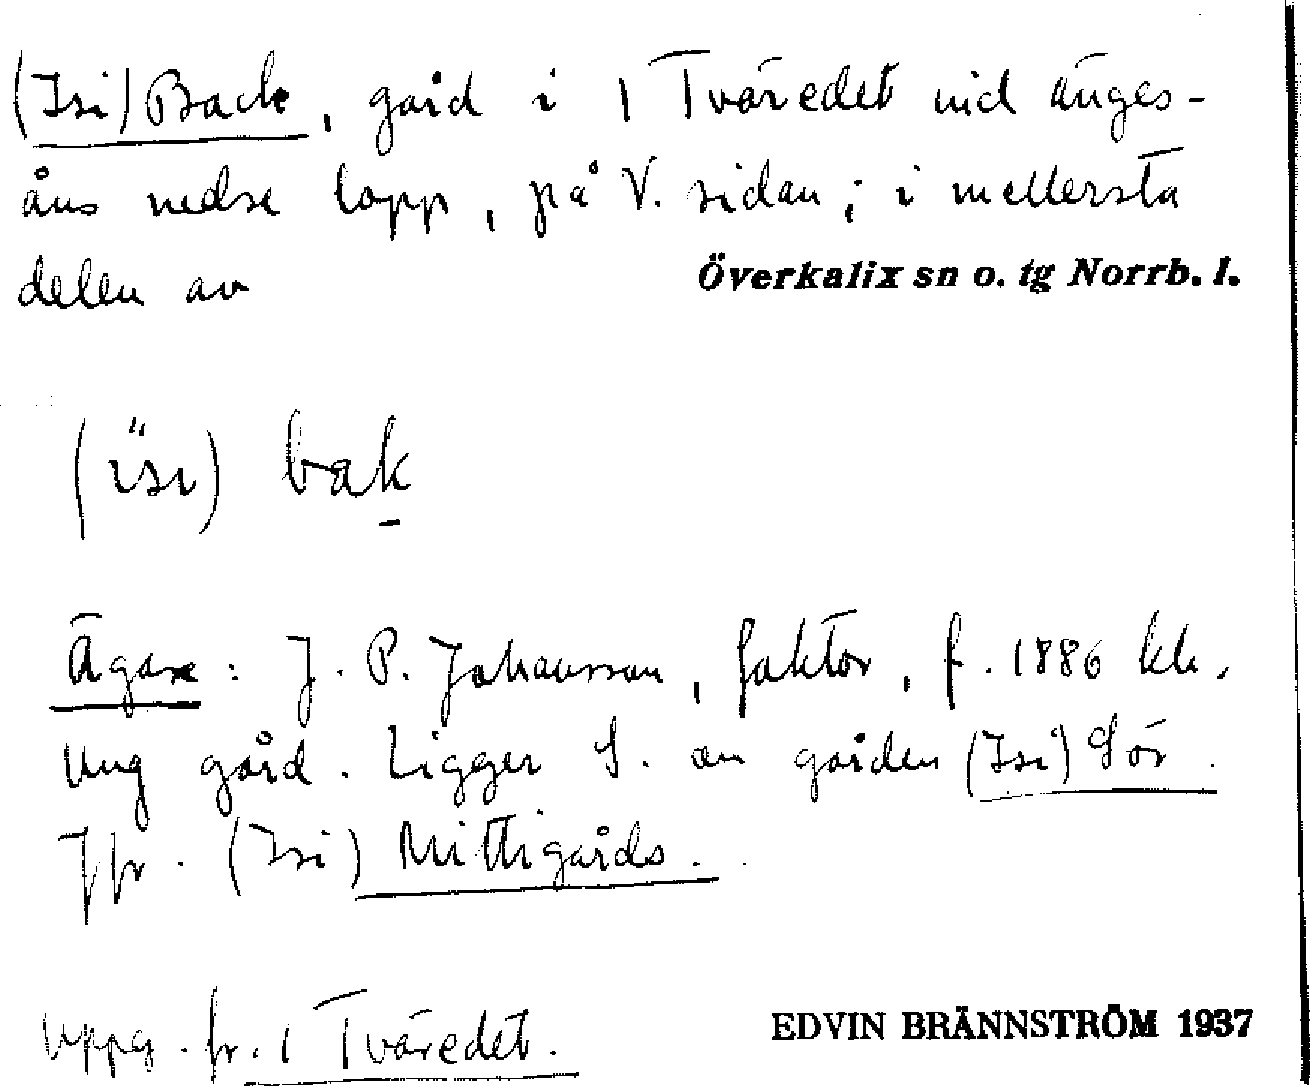 (Isi) Back, gård i 1 Tväredet vid änges-
åns nedre lopp, på V. sidan; i mellersta
delen av Överkalix sn o. tg Norrb. l.
(ïsı) bak
Ägare: J. P. Johansson, faktor, f. 1886 hh.
Ung gård. Ligger S. om gården (Isi) Sör.
Jfr. (Isi) Mittigårds.
Uppg. fr. 1 Tväredet. EDVIN BRÄNNSTRÖM 1937